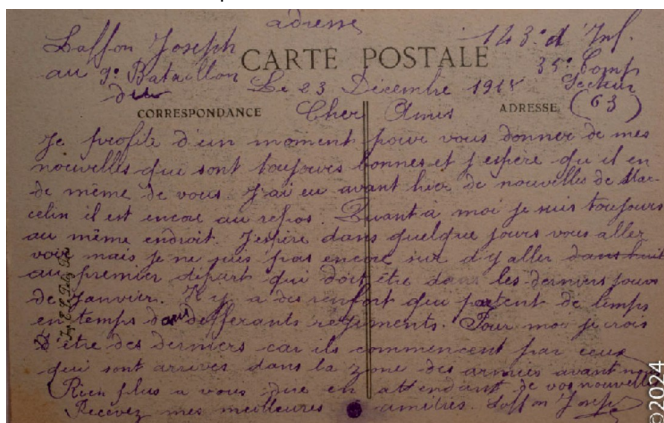 adresse
Laffon Joseph
au 9e Bataillon
du
143e d'Inf.
35e Comp
Secteur
(63)
CARTE POSTALE
Le 23 Décembre 1914
CORRESPONDANCE
ADRESSE
Cher Amis
Je profite d'un moment pour vous donner de mes
nouvelles qui sont toujours bonnes et j'espère qu'il en
de même de vous. J'ai eu avant hier de nouvelles de Mar-
celin il est encore au repos. Quant a moi je suis toujours
au même endroit. J'espère dans quelque jours vous aller
voir mais je ne suis pas encore sur d'y aller
au premier départ qui doit être dans les derniers jours
de janvier. Il y a du renfort qui partent de temps
en temps dans differants regiments. Pour moi je crois
d'être des derniers car ils commencent par ceux
qui sont arrives dans la zone des armées avant nous
Rien plus a vous dire en attendant de vos nouvelles
Recevez mes meilleures amitiés. Laffon Joseph
©2024